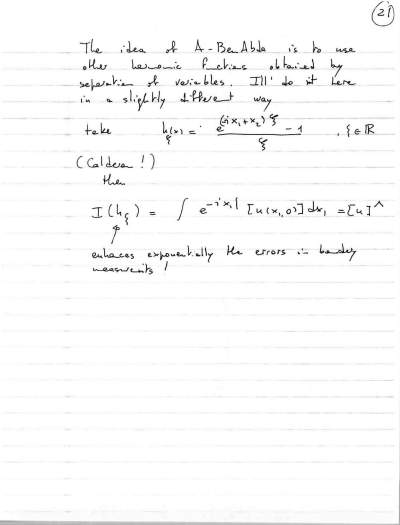 21
The idea of A-BenAbda is to use
other harmonic functions obtained by
separation of variables. I'll do it here
in a slightly different way
take h_ξ(x) = (e^{(ix₁+x₂)ξ} - 1)/ξ , ξ ∈ ℝ
(Calderon!)
then
I(h_ξ) = ∫ e^{-ix₁ξ} [u(x₁,0)] dx₁ = [u]^
enhances exponentially the errors in boundary
measurements!